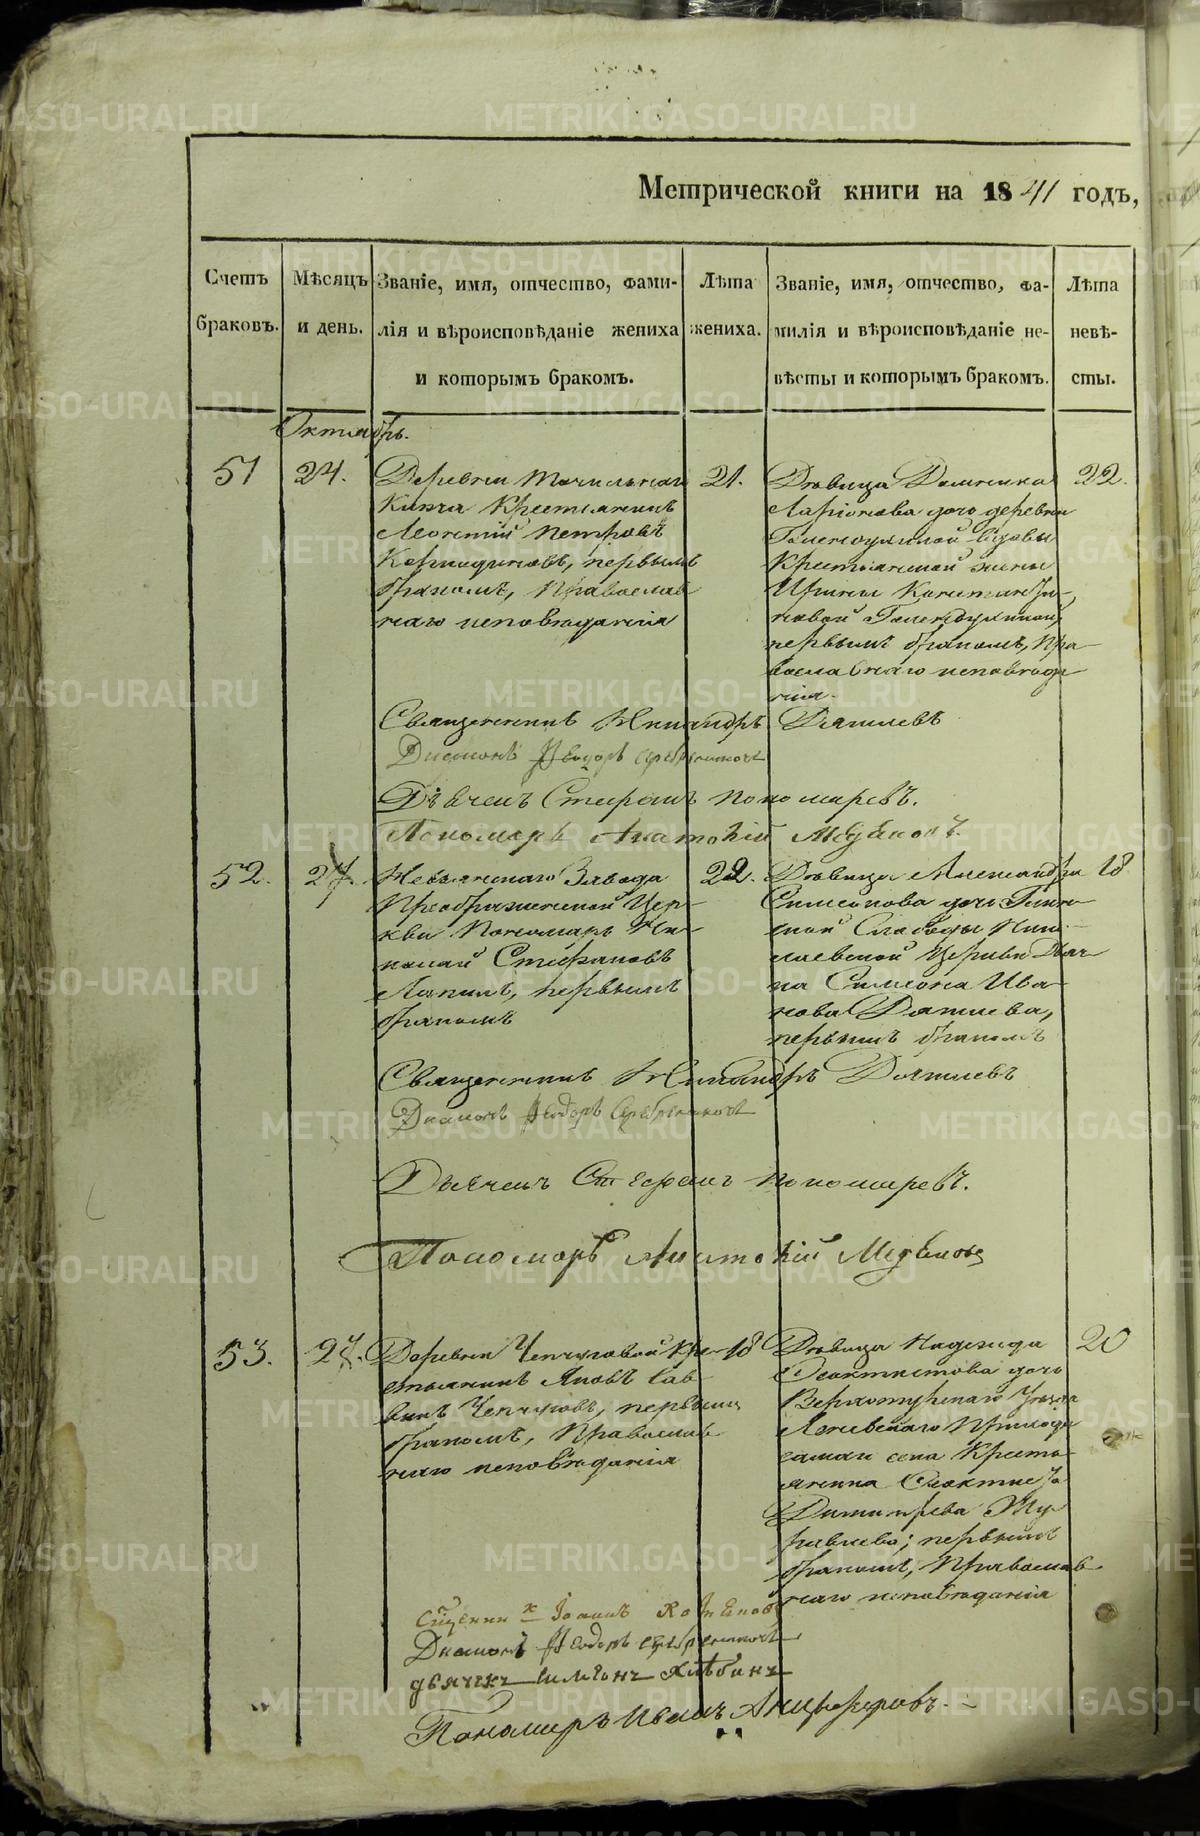 Метрической книги на 1841 годъ,
Счетъ браковъ.
Мѣсяцъ и день.
Званіе, имя, отчество, фами-
лія и вѣроисповѣданіе жениха
и которымъ бракомъ.
Лѣта жениха.
Званіе, имя, отчество, фа-
милія и вѣроисповѣданіе не-
вѣсты и которымъ бракомъ.
Лѣта невѣ-
сты.
Октябрь.
51
24.
Деревни Точильнаго
Ключа Крестьянинъ
Леонтій Петровъ
первымъ
бракомъ, Православ
наго исповѣданія
21.
Дѣвица Домника
Ларіонова дочь деревни
вдовы
Крестьянской жены
Ирины Константи-
новой
первымъ бракомъ, Пра-
вославнаго исповѣда
нія.
22.
Священникъ Никандръ Дягилевъ
Діаконъ Ѳеодоръ Серебренниковъ
Дьячекъ Стефанъ Пономаревъ.
Пономарь
52.
27.
Невьянскаго Завода
Преображенской Цер-
кви Пономарь Ни-
колай Стефановъ
Лапинъ, первымъ
бракомъ
22.
Дѣвица Александра
Симеонова дочь
ской Слободы Нико-
лаевской Церкви Дьяч
ка Симеона Ива
нова Дягилева,
первымъ бракомъ
18
Священникъ Никандръ Дягилевъ
Діаконъ Ѳеодоръ Серебренниковъ
Дьячекъ Стефанъ Пономаревъ.
Пономарь
53.
27.
Деревни Чепчуговой Кре-
стьянинъ Яковъ Сав
винъ Чепчуговъ, первымъ
бракомъ, Православ
наго исповѣданія
18
Дѣвица Надежда
Феоктистова дочь
Верхотурскаго Уѣзда
Прихода
села Кресть
янина Феоктиста
Димитріева Жу
равлева; первымъ
бракомъ, Православ
наго исповѣданія
20
Іоаннъ
Діаконъ Ѳеодоръ Серебренниковъ
дьячекъ Симеонъ Хлѣбинъ
Пономарь Иванъ Анцыферовъ.
METRIKI.GASO-URAL.RU